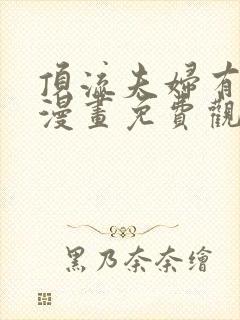 頂流夫婦有
漫畫免費觀
黑乃奈奈繪